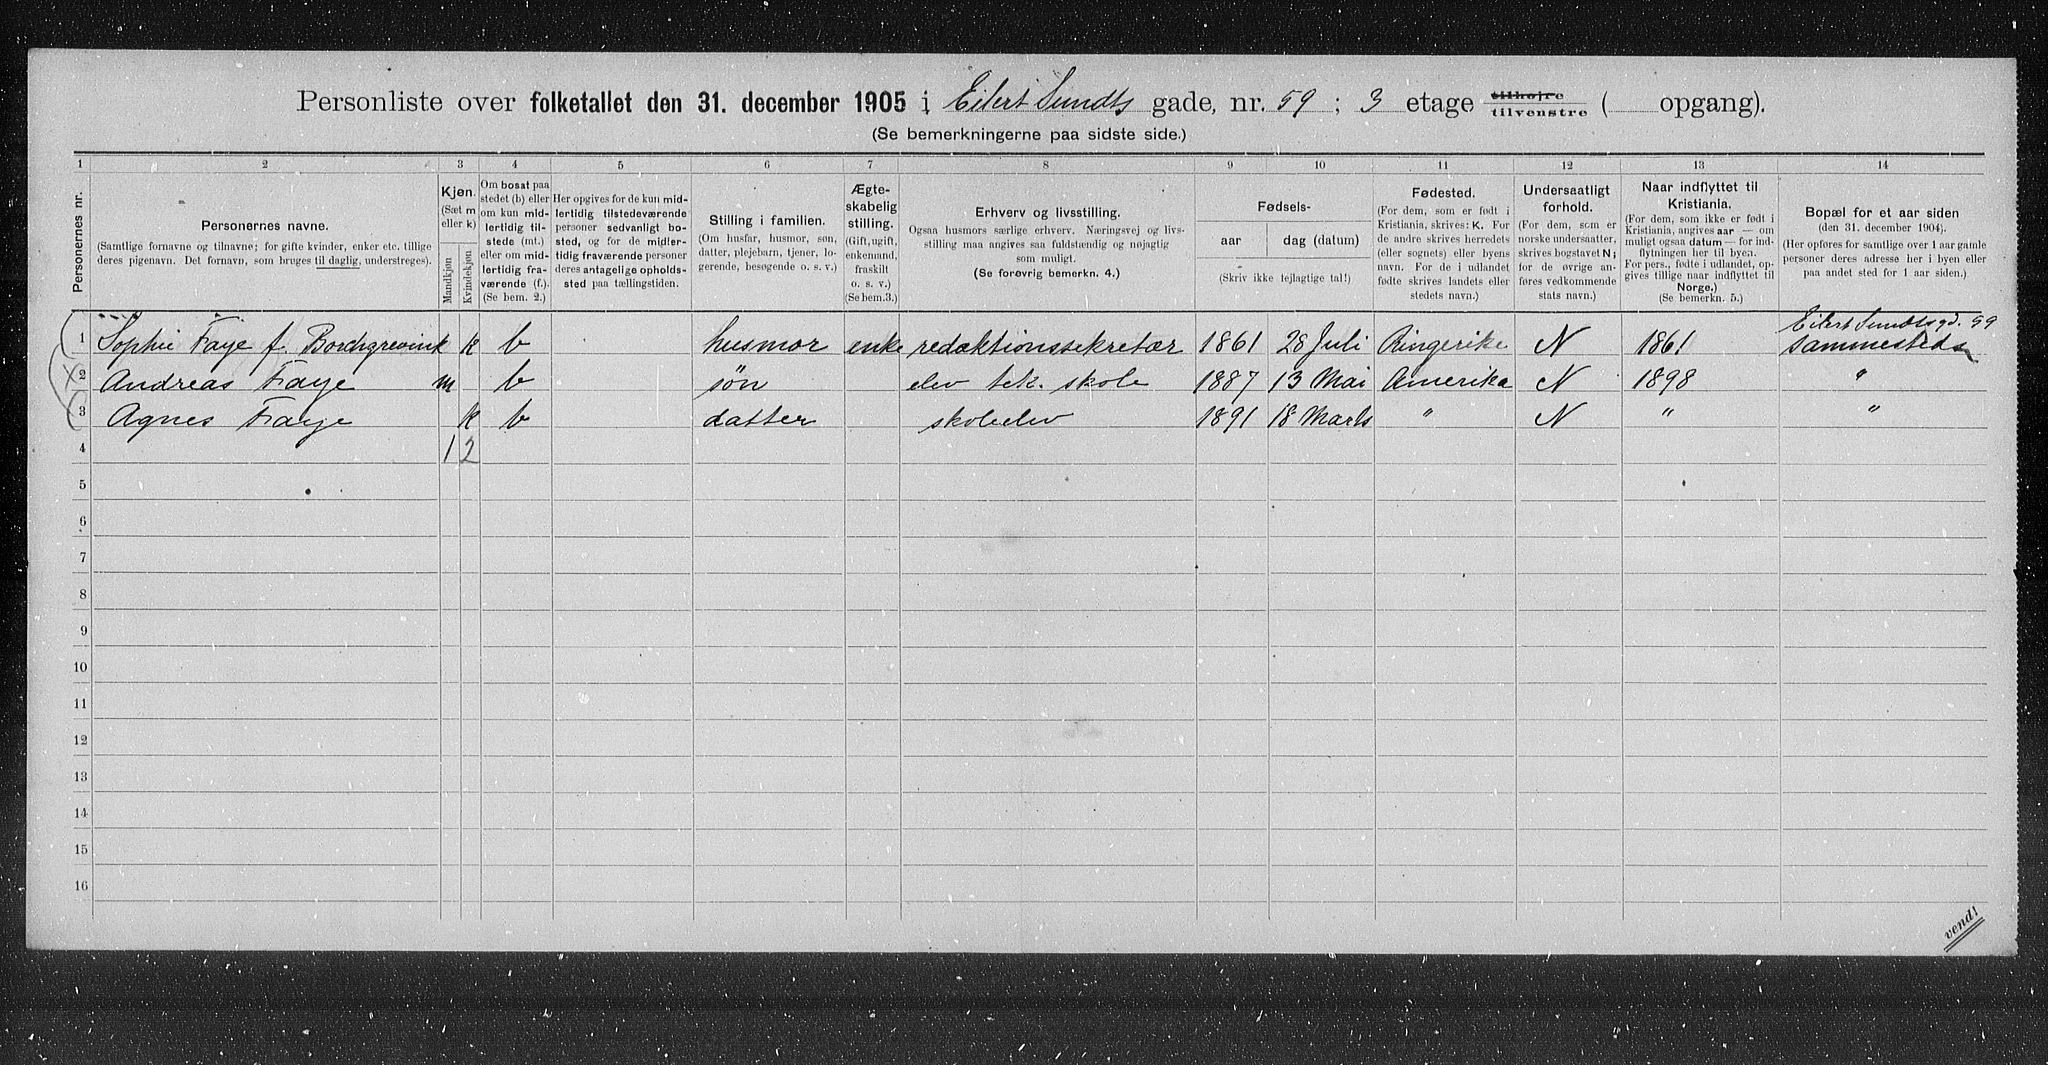 Personliste over folketallet den 31. december 1905 i Eilert Sundts gade, nr. 59 ; 3 etage tilhøjre tilvenstre ( opgang).
(Se bemerkningerne paa sidste side.)
1 2 3 4 5 6 7 8 9 10 11 12 13 14
Personernes nr.
Personernes navne.
(Samtlige fornavne og tilnavne; for gifte kvinder, enker etc. tillige
deres pigenavn. Det fornavn, som bruges til daglig, understreges).
Kjøn.
(Sæt m
eller k)
Mandkjøn
Kvindekjøn
Om bosat paa
stedet (b) eller
om kun mid-
lertidig til-
stede (mt.)
eller om mid-
lertidig fra-
værende (f.).
(Se bem. 2.)
Her opgives for de kun mid-
lertidig tilstedeværende
personer sedvanligt bo-
sted, og for de midler-
tidig fraværende personer
deres antagelige opholds-
sted paa tællingstiden.
Stilling i familien.
(Om husfar, husmor, søn,
datter, plejebarn, tjener, lo-
gerende, besøgende o. s. v.)
Ægte-
skabelig
stilling.
(Gift, ugift,
enkemand,
fraskilt
o. s. v.)
(Se bem.3.)
Erhverv og livsstilling.
Ogsaa husmors særlige erhverv. Næringsvej og livs-
stilling maa angives saa fuldstændig og nøjagtig
som muligt.
(Se forøvrig bemerkn. 4.)
Fødsels-
aar dag (datum)
(Skriv ikke fejlagtige tal!)
Fødested.
(For dem, som er født i
Kristiania, skrives: K. For
de andre skrives herredets
(eller sognets) eller byens
navn. For de i udlandet
fødte skrives landets eller
stedets navn.)
Undersaatligt
forhold.
(For dem, som er
norske undersaatter,
skrives bogstavet N;
for de øvrige an-
føres vedkommende
stats navn.)
Naar indflyttet til
Kristiania.
(For dem, som ikke er født i
Kristiania, angives aar — om
muligt ogsaa datum — for ind-
flytningen her til byen.
For pers., fødte i udlandet, op-
gives tillige naar indflyttet til
Norge.)
(Se bemerkn. 5.)
Bopæl for et aar siden
(den 31. december 1904).
(Her opføres for samtlige over 1 aar gamle
personer deres adresse her i byen eller
paa andet sted for 1 aar siden.)
Eilert Sundtsgd. 59
1 Sophie Faye f. Borchgrevink k b husmor enke redaktionssekretær 1861 28 Juli Ringerike N 1861 Sammesteds
2 Andreas Faye m b søn elev tek. skole 1887 13 Mai Amerika N 1898 "
3 Agnes Faye k b datter skoleelev 1891 18 Marts " N " "
4 1 2
5
6
7
8
9
10
11
12
13
14
15
16
vend!